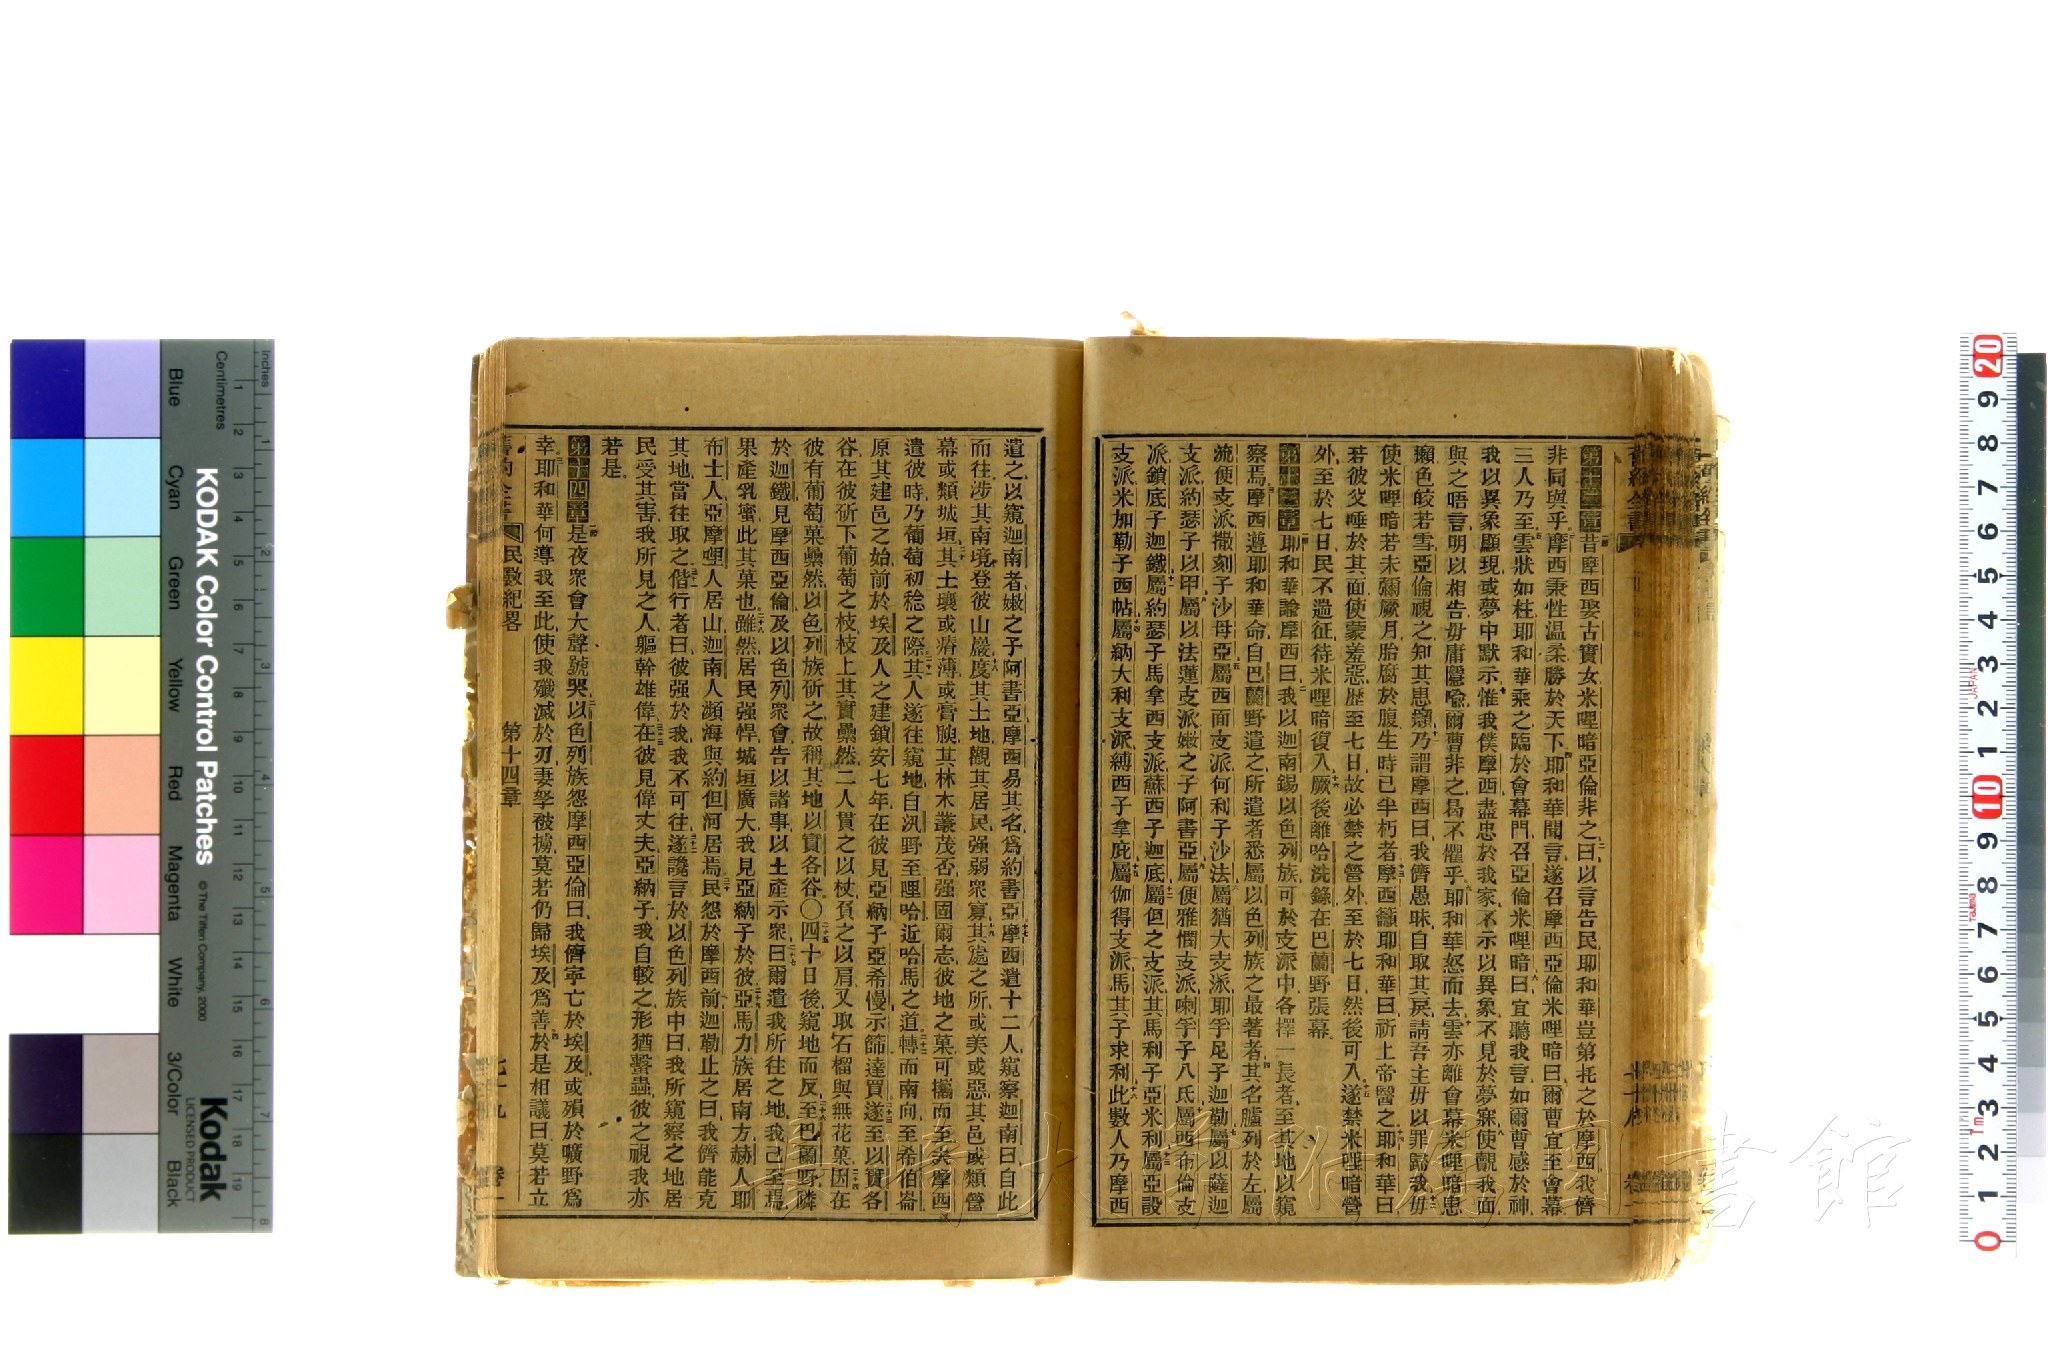 第十二章昔摩西娶古實女米哩暗亞倫非之曰以言告民耶和華豈第托之於摩西我儕
非同與乎摩西秉性温柔勝於天下耶和華聞言遂召摩西亞倫米哩暗曰爾曹宜至會幕
三人乃至雲狀如柱耶和華乘之臨於會幕門召亞倫米哩暗曰宜聽我言如爾曹感於神
我以異象顯現或夢中默示惟我僕摩西盡忠於我家不示以異象不見於夢寐使觀我面
與之晤言明以相告毋庸隱喻爾曹非之曷不懼乎耶和華怒而去雲亦離會幕米哩暗患
癩色皎若雪亞倫視之知其患癩乃謂摩西曰我儕愚昧自取其戾請吾主毋以罪歸我毋
使米哩暗若未彌厥月胎腐於腹生時已半朽者摩西籲耶和華曰祈上帝醫之耶和華曰
若彼父唾於其面使蒙羞惡歷至七日故必禁之營外至於七日然後可入遂禁米哩暗營
外至於七日民不遄征待米哩暗復入厥後離哈洗錄在巴蘭野張幕
第十三章耶和華諭摩西曰我以迦南錫以色列族可於支派中各擇一長者至其地以窺
察焉摩西遵耶和華命自巴蘭野遣之所遣者悉屬以色列族之最著者其名臚列於左屬
流便支派撒刻子沙母亞屬西面支派何利子沙法屬猶大支派耶孚尼子迦勒屬以薩迦
支派約瑟子以甲屬以法蓮支派嫩之子阿書亞屬便雅憫支派喇孚子八氏屬西布倫支
派鎖底子迦鐵屬約瑟子馬拿西支派蘇西子迦底屬但之支派其馬利子亞米利屬亞設
支派米加勒子西帖屬納大利支派縛西子拿庇屬伽得支派馬其子求利此數人乃摩西
遣之以窺迦南者嫩之子阿書亞摩西易其名爲約書亞摩西遣十二人窺察迦南曰自此
而往涉其南境登彼山巖度其土地觀其居民强弱衆寡其處之所或美或惡其邑或類營
幕或類城垣其土壤或瘠薄或膏腴其林木叢茂否强固爾志彼地之菓可攜而至矣摩西
遣彼時乃葡萄初稔之際其人遂往窺地自汛野至哩哈近哈馬之道轉而南向至希伯崙
原其建邑之始前於埃及人之建鎖安七年在彼見亞納子亞希慢示篩達買遂至以實各
谷在彼斫下葡萄之枝枝上其實纍然二人貫之以杖負之以肩又取石榴與無花菓因在
彼有葡萄菓纍然以色列族斫之故稱其地以實各谷〇四十日後窺地而反至巴蘭野隣
於迦鐵見摩西亞倫及以色列衆會告以諸事以土產示衆曰爾遣我所往之地我已至焉
果產乳蜜此其菓也雖然居民强悍城垣廣大我見亞納子於彼亞馬力族居南方赫人耶
布士人亞摩哩人居山迦南人瀕海與約但河居焉民怨於摩西前迦勒止之曰我儕能克
其地當往取之偕行者曰彼强於我我不可往遂讒言於以色列族中曰我所窺察之地居
民受其害我所見之人軀幹雄偉在彼見偉丈夫亞納子我自較之形猶螽蟲彼之視我亦
若是
第十四章是夜衆會大聲號哭以色列族怨摩西亞倫曰我儕寧亡於埃及或殞於曠野爲
幸耶和華何導我至此使我殲滅於刃妻孥被擄莫若仍歸埃及爲善於是相議曰莫若立
舊約全書 民數紀畧 第十四章 七十九 卷一